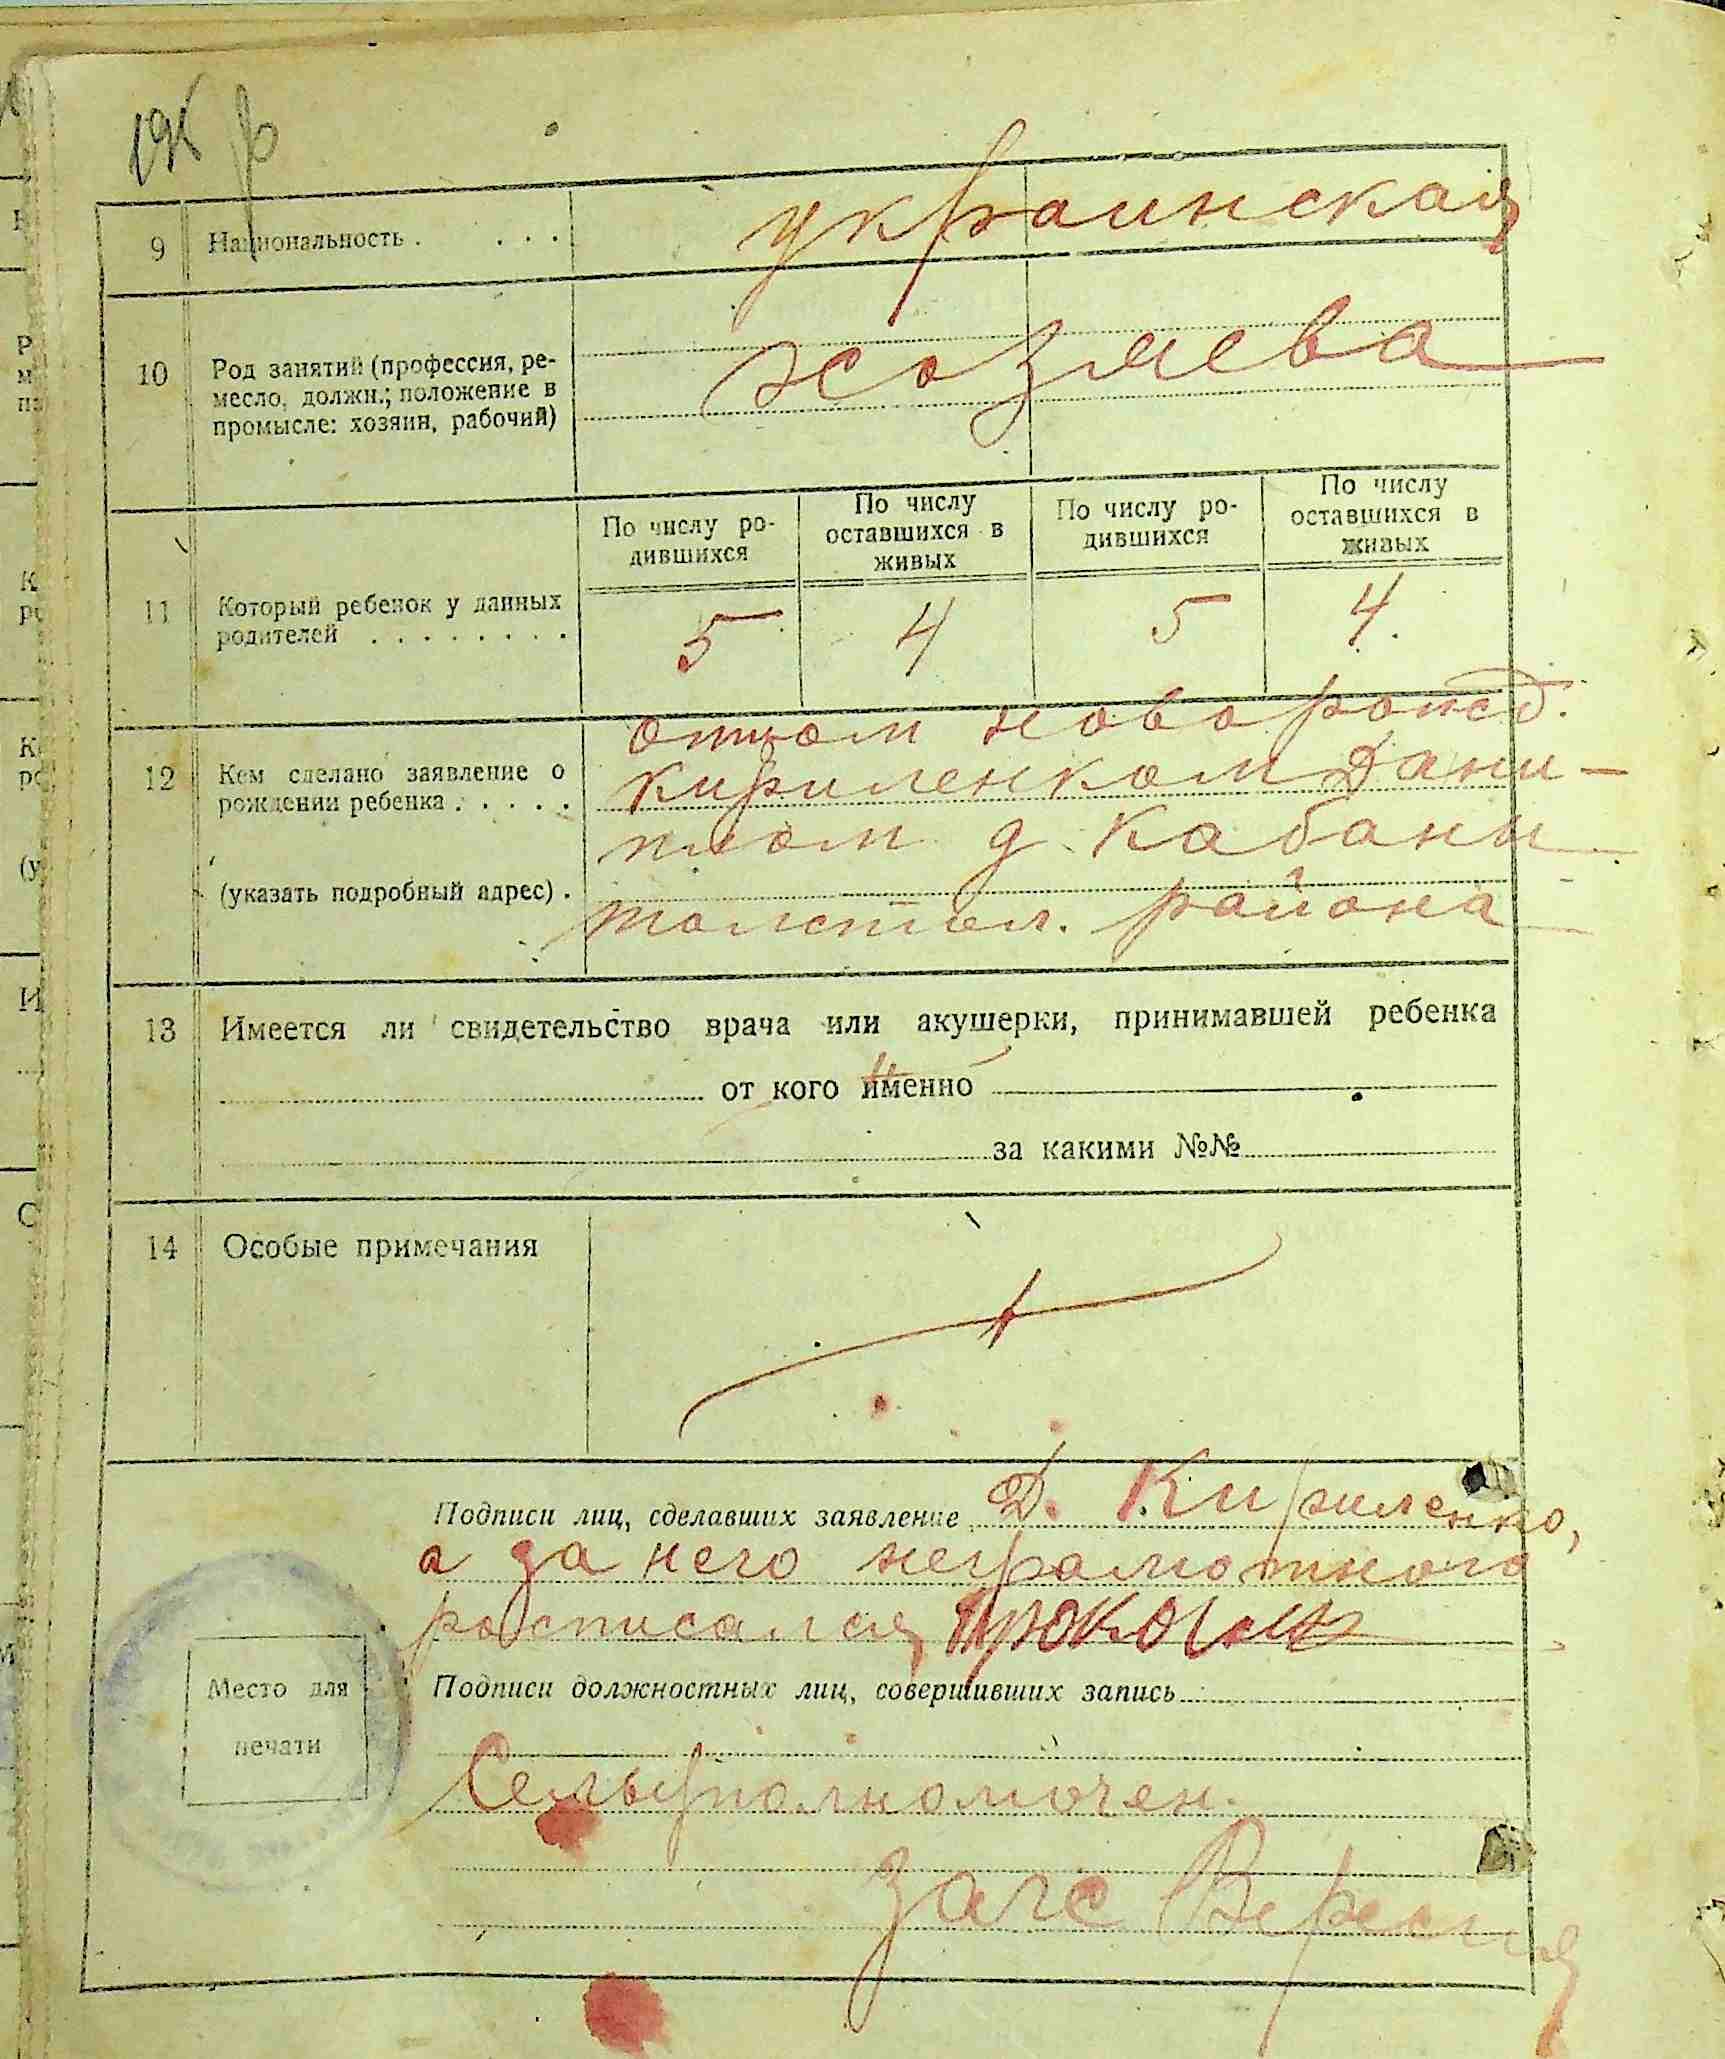 9 Национальность . . . . украинская
10 Род занятий (профессия, ре-
месло, должн.; положение в
промысле: хозяин, рабочий)
хозяева
По числу ро-
дившихся
По числу
оставшихся в
живых
По числу ро-
дившихся
По числу
оставшихся в
живых
11 Который ребенок у данных
родителей . . . . . . . .
5 4 5 4.
12 Кем сделано заявление о
рождении ребенка . . . . .
(указать подробный адрес) .
отцом новорожд.
Кириленком Дани-
лом д. Кабани
района
13 Имеется ли свидетельство врача или акушерки, принимавшей ребенка
от кого именно
за какими №№
14 Особые примечания
Подписи лиц, сделавших заявление Д. Кириленко,
а за него неграмотного
росписался
Место для
печати
Подписи должностных лиц, совершивших запись
Сельуполномочен.
загс